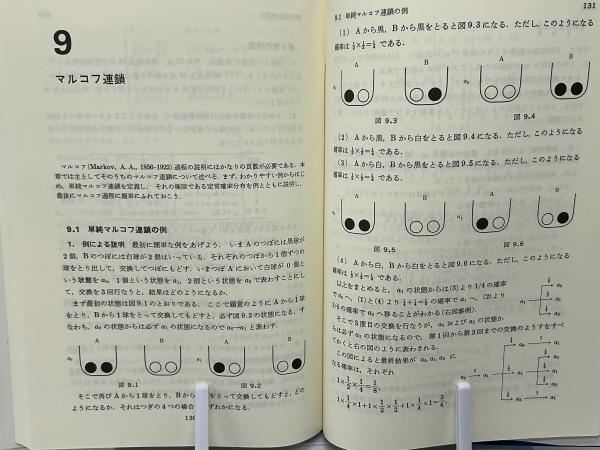 9
マルコフ連鎖
マルコフ(Markov, A. A., 1856-1922)過程の説明にはかなりの頁数が必要である. 本
章では主としてそのうちのマルコフ連鎖について述べる. まず, わかりやすい例からはじ
め, 単純マルコフ連鎖を定義し, それの極限である定常確率分布を例とともに説明し,
最後にマルコフ過程に簡単にふれておこう.
9.1 単純マルコフ連鎖の例
1. 例による説明 最初に簡単な例をあげよう. いま A のつぼには黒球が
2個, B のつぼには白球が 2個はいっている. それぞれのつぼから 1個ずつの
球をとり出して, 交換してつぼにもどす. いまつぼ A において白球が 0 個と
いう状態を a₀, 1個という状態を a₁, 2個という状態を a₂ で表わすことにし
て, 交換を3回行なうと, 結果はどのようになるか.
まず最初の状態は図9.1のとおりである. ここで壺のようにAから1球
をとり, Bから1球をとって交換してもどすと, 必ず図9.2の状態になる. す
なわち, a₀ の状態からは必ず a₁ の状態になるので a₀→a₁ と表わす.
A B A B
a₀ a₁
図 9.1 図 9.2
そこで再び A から1球をとり, B から をとって交換してもどすと, どの
ようになるか. それはつぎの4つの場合 ずれかになる.
130
9.1 単純マルコフ連鎖の例 131
(1) A から黒, B から黒をとると図9.3になる. ただし, このようになる
確率は ½×½=¼ である.
A B A B
a₁ a₂
図 9.3 図 9.4
(2) A から黒, B から白をとると図9.4になる. ただし, このようになる
確率は ½×½=¼ である.
(3) A から白, B から黒をとると図9.5になる. ただし, このようになる
確率は ½×½=¼ である.
A B A B
a₀ a₁
図 9.5 図 9.6
(4) A から白, B から白をとると図9.6になる. ただし, このようになる
確率は ½×½=¼ である.
以上をまとめると, a₁ の状態からは(3)より 1/4 の確率
で a₀ へ, (1)と(4)より ¼+¼=½ の確率で a₁ へ, (2)より
1/4 の確率で a₂ へ移ることがわかる(右図参照).
そこで3度目の交換を行なうが, a₀ および a₂ の状態か
らは必ず a₁ の状態になるので, 第1回から第3回までの交換のようすをすべ
てかくと右の図のように表わされる.
この図によると最終結果が a₀, a₁, a₂ に
なる確率は, それぞれ
1×1/2×1/4=1/8,
1×1/4×1+1×1/2×1/2+1×1/4×1=3/4,